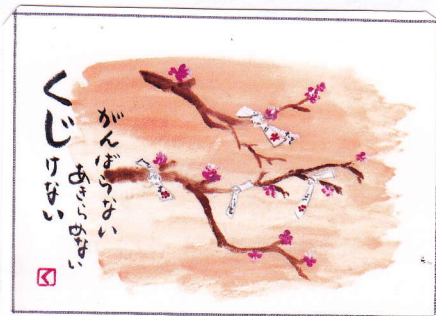 がんばらない
あきらめない
くじけない
く